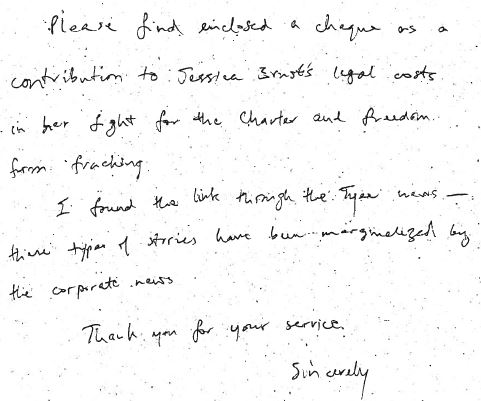 Please find enclosed a cheque as a
contribution to Jessica Ernst's legal costs
in her fight for the Charter and freedom
from fracking.
I found the link through the Tyee news —
these types of stories have been marginalized by
the corporate news
Thank you for your service.
Sincerely